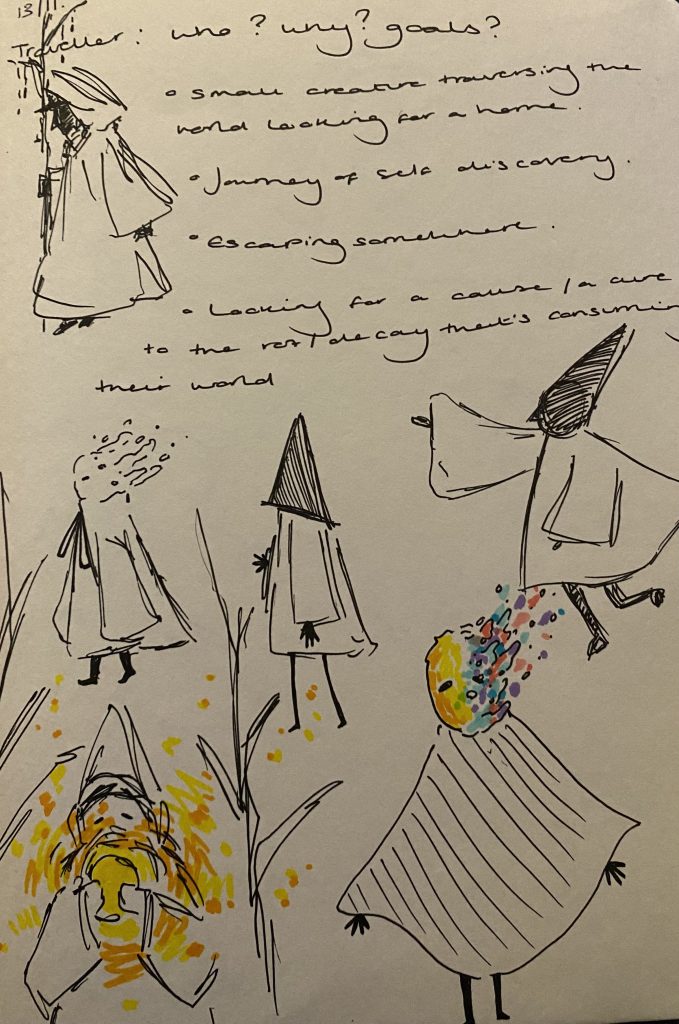 13/11.
Traveller: who? why? goals?
• small creature traversing the
world looking for a home.
• Journey of self discovery.
• Escaping somewhere.
• Looking for a cause / a cure
to the rot / decay that's consuming
their world